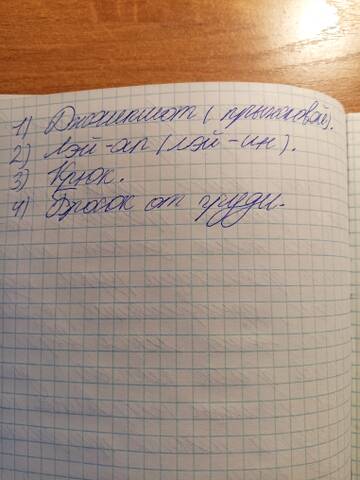 1) Джампшот (прыжковой).
2) Лэй-ап (лэй-ин).
3) Крюк.
4) Бросок от груди.